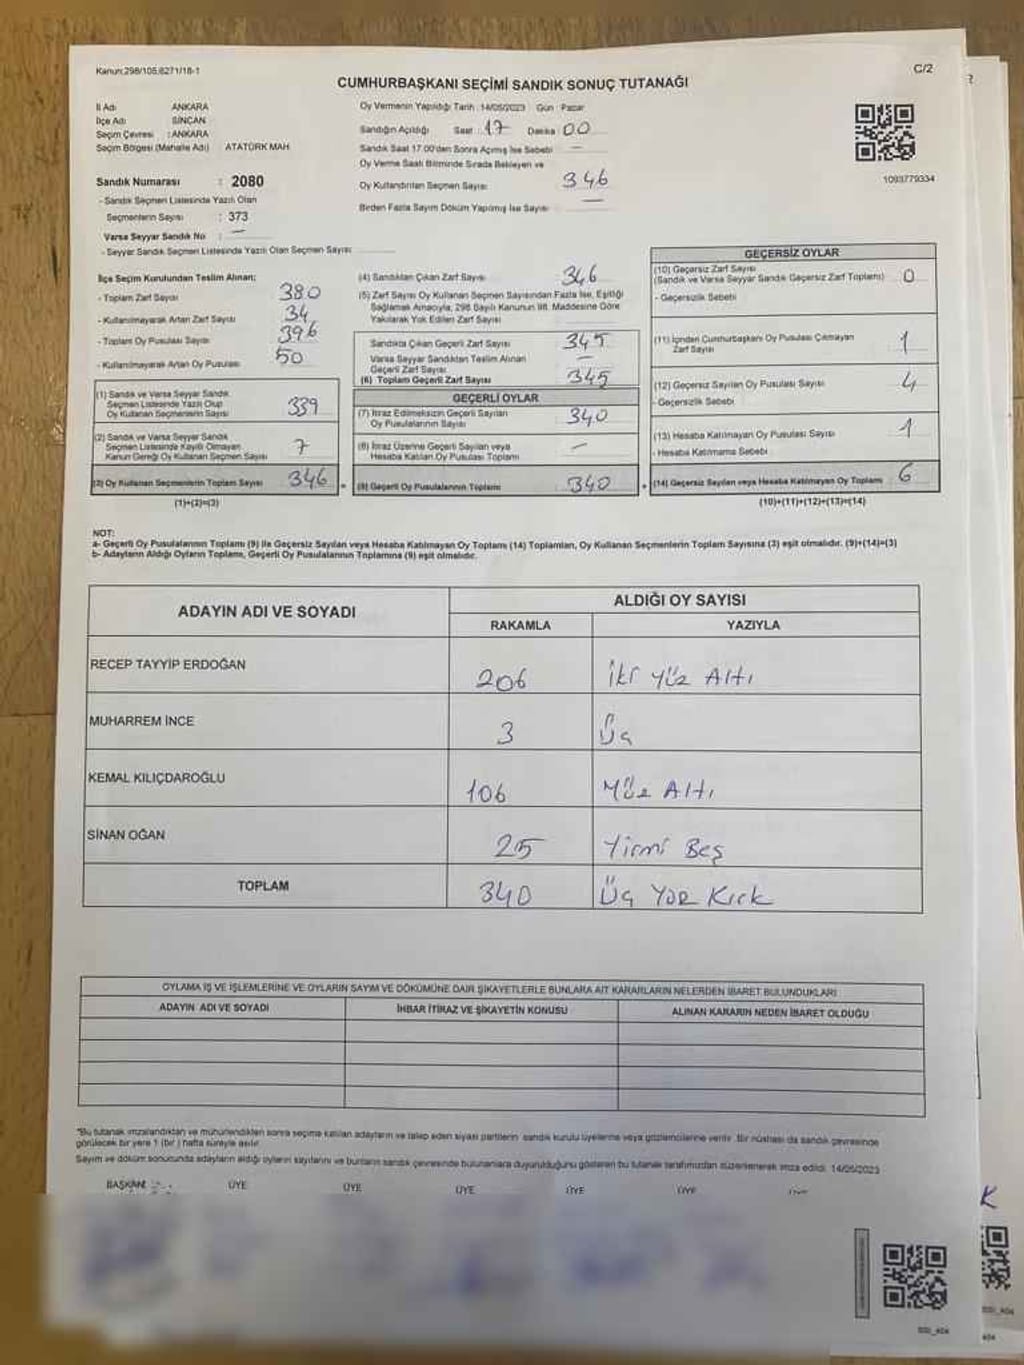 Kanun:298/105,6271/18-1
C/2
CUMHURBAŞKANI SEÇİMİ SANDIK SONUÇ TUTANAĞI
İl Adı ANKARA
İlçe Adı SİNCAN
Seçim Çevresi : ANKARA
Seçim Bölgesi (Mahalle Adı) ATATÜRK MAH.
Oy Vermenin Yapıldığı Tarih : 14/05/2023 Gün : Pazar
Sandığın Açıldığı Saat 17 Dakika 00
Sandık Saat 17.00'den Sonra Açılmış İse Sebebi —
Oy Verme Saati Bitiminde Sırada Bekleyen ve
Oy Kullandırılan Seçmen Sayısı 346
Birden Fazla Sayım Döküm Yapılmış İse Sayısı —
1093779334
Sandık Numarası : 2080
- Sandık Seçmen Listesinde Yazılı Olan
Seçmenlerin Sayısı : 373
Varsa Seyyar Sandık No : —
- Seyyar Sandık Seçmen Listesinde Yazılı Olan Seçmen Sayısı
İlçe Seçim Kurulundan Teslim Alınan;
- Toplam Zarf Sayısı 380
- Kullanılmayarak Artan Zarf Sayısı 34
- Toplam Oy Pusulası Sayısı 396
- Kullanılmayarak Artan Oy Pusulası 50
(1) Sandık ve Varsa Seyyar Sandık
Seçmen Listesinde Yazılı Olup
Oy Kullanan Seçmenlerin Sayısı 339
(2) Sandık ve Varsa Seyyar Sandık
Seçmen Listesinde Kayıtlı Olmayan
Kanun Gereği Oy Kullanan Seçmen Sayısı 7
(3) Oy Kullanan Seçmenlerin Toplam Sayısı 346
(1)+(2)=(3)
(4) Sandıktan Çıkan Zarf Sayısı 346
(5) Zarf Sayısı Oy Kullanan Seçmen Sayısından Fazla İse, Eşitliği
Sağlamak Amacıyla, 298 Sayılı Kanunun 98. Maddesine Göre
Yakılarak Yok Edilen Zarf Sayısı
Sandıkta Çıkan Geçerli Zarf Sayısı 345
Varsa Seyyar Sandıktan Teslim Alınan
Geçerli Zarf Sayısı —
(6) Toplam Geçerli Zarf Sayısı 345
GEÇERLİ OYLAR
(7) İtiraz Edilmeksizin Geçerli Sayılan
Oy Pusulalarının Sayısı 340
(8) İtiraz Üzerine Geçerli Sayılan veya
Hesaba Katılan Oy Pusulası Toplamı —
(9) Geçerli Oy Pusulalarının Toplamı 340
GEÇERSİZ OYLAR
(10) Geçersiz Zarf Sayısı
(Sandık ve Varsa Seyyar Sandık Geçersiz Zarf Toplamı) 0
- Geçersizlik Sebebi
(11) İçinden Cumhurbaşkanı Oy Pusulası Çıkmayan
Zarf Sayısı 1
(12) Geçersiz Sayılan Oy Pusulası Sayısı 4
- Geçersizlik Sebebi
(13) Hesaba Katılmayan Oy Pusulası Sayısı 1
- Hesaba Katılmama Sebebi
(14) Geçersiz Sayılan veya Hesaba Katılmayan Oy Toplamı 6
(10)+(11)+(12)+(13)=(14)
NOT:
a- Geçerli Oy Pusulalarının Toplamı (9) ile Geçersiz Sayılan veya Hesaba Katılmayan Oy Toplamı (14) Toplamları, Oy Kullanan Seçmenlerin Toplam Sayısına (3) eşit olmalıdır. (9)+(14)=(3)
b- Adayların Aldığı Oyların Toplamı, Geçerli Oy Pusulalarının Toplamına (9) eşit olmalıdır.
ADAYIN ADI VE SOYADI
ALDIĞI OY SAYISI
RAKAMLA YAZIYLA
RECEP TAYYİP ERDOĞAN 206 İki Yüz Altı
MUHARREM İNCE 3 Üç
KEMAL KILIÇDAROĞLU 106 Yüz Altı
SİNAN OĞAN 25 Yirmi Beş
TOPLAM 340 Üç Yüz Kırk
OYLAMA İŞ VE İŞLEMLERİNE VE OYLARIN SAYIM VE DÖKÜMÜNE DAİR ŞİKAYETLERLE BUNLARA AİT KARARLARIN NELERDEN İBARET BULUNDUKLARI
ADAYIN ADI VE SOYADI İHBAR İTİRAZ VE ŞİKAYETİN KONUSU ALINAN KARARIN NEDEN İBARET OLDUĞU
*Bu tutanak imzalandıktan ve mühürlendikten sonra seçime katılan adayların ve talep eden siyasi partilerin sandık kurulu üyelerine veya gözlemcilerine verilir. Bir nüshası da sandık çevresinde
görülecek bir yere 1 (bir ) hafta süreyle asılır.
Sayım ve döküm sonucunda adayların aldığı oyların sayılarını ve bunların sandık çevresinde bulunanlara duyurulduğunu gösteren bu tutanak tarafımızdan düzenlenerek imza edildi. 14/05/2023
BAŞKAN ÜYE ÜYE ÜYE ÜYE ÜYE
K